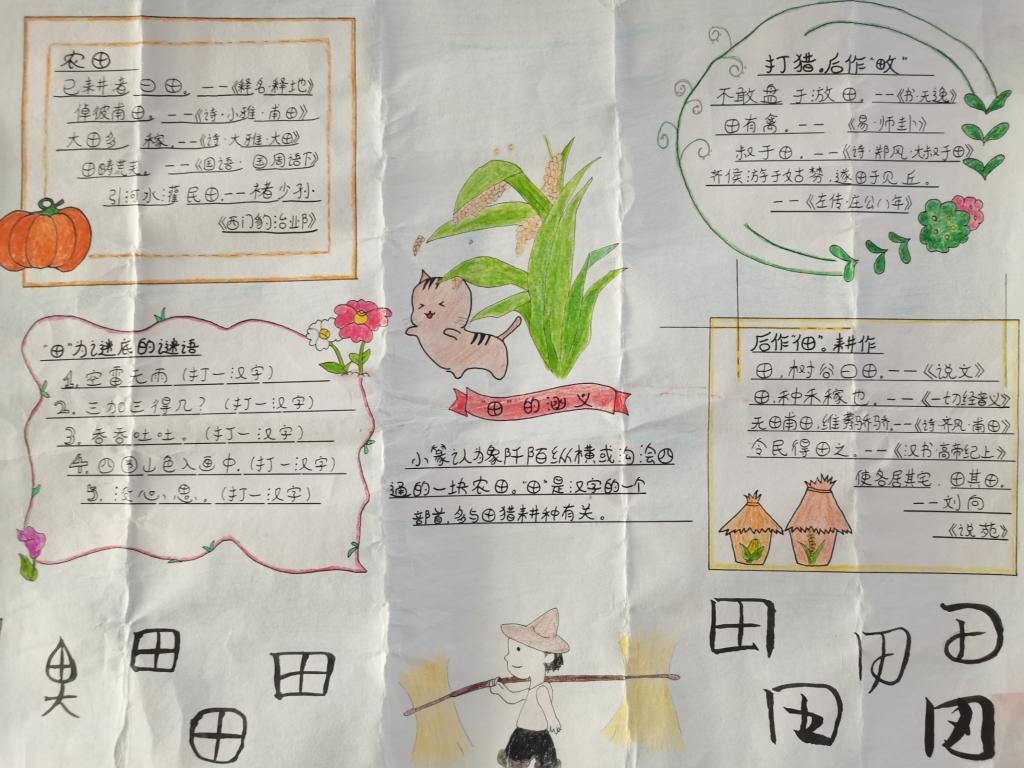 农田
已耕者曰田。——《释名·释地》
倬彼南田。——《诗·小雅·甫田》
大田多稼。——《诗·大雅·大田》
田畴荒芜。——《国语·周语下》
引河水灌民田。——褚少孙
《西门豹治业阝》
"田"为谜底的谜语
1. 空雷无雨(打一汉字)
2. 三加三得几?(打一汉字)
3. 吞吞吐吐。(打一汉字)
4. 四国山色入画中。(打一汉字)
5. 没心思。(打一汉字)
"田"的涵义
小篆认为象阡陌纵横或沟浍四
通的一块农田。"田"是汉字的一个
部首,多与田猎耕种有关。
打猎。后作"畋"
不敢盘于游田。——《书·无逸》
田有禽。——《易·师卦》
叔于田。——《诗·郑风·大叔于田》
齐侯游于姑棼,遂田于贝丘。
——《左传·庄公八年》
后作"佃"。耕作
田,树谷曰田。——《说文》
田,种禾稼也。——《一切经音义》
无田甫田,维莠骄骄。——《诗·齐风·甫田》
令民得田之。——《汉书·高帝纪上》
使各居其宅,田其田。
——刘向
《说苑》
田
田
田
田
田